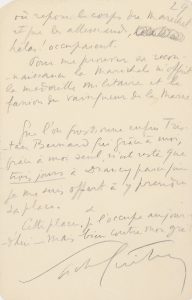 où repose le corps du Marechal
et que les allemands,
hélas! occupaient.
Pour me prouver sa recon-
naissance le Marechal m'offrit
la médaille militaire et le
fanion du vainqueur de la Marne.
Que l'on fusse enfin Tris-
tan Bernard fut grâce à moi,
grâce à moi seul, n'est resté que
trois jours à Drancy parce que
je me suis offert à y prendre
sa place.
Cette place, je l'occupe aujour-
d'hui — mais bien contre mon gré
Sacha Guitry